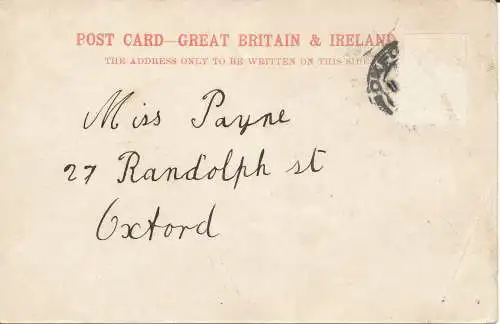 POST CARD—GREAT BRITAIN & IRELAND
THE ADDRESS ONLY TO BE WRITTEN ON THIS SIDE
OXFO
Miss Payne
27 Randolph st
Oxford